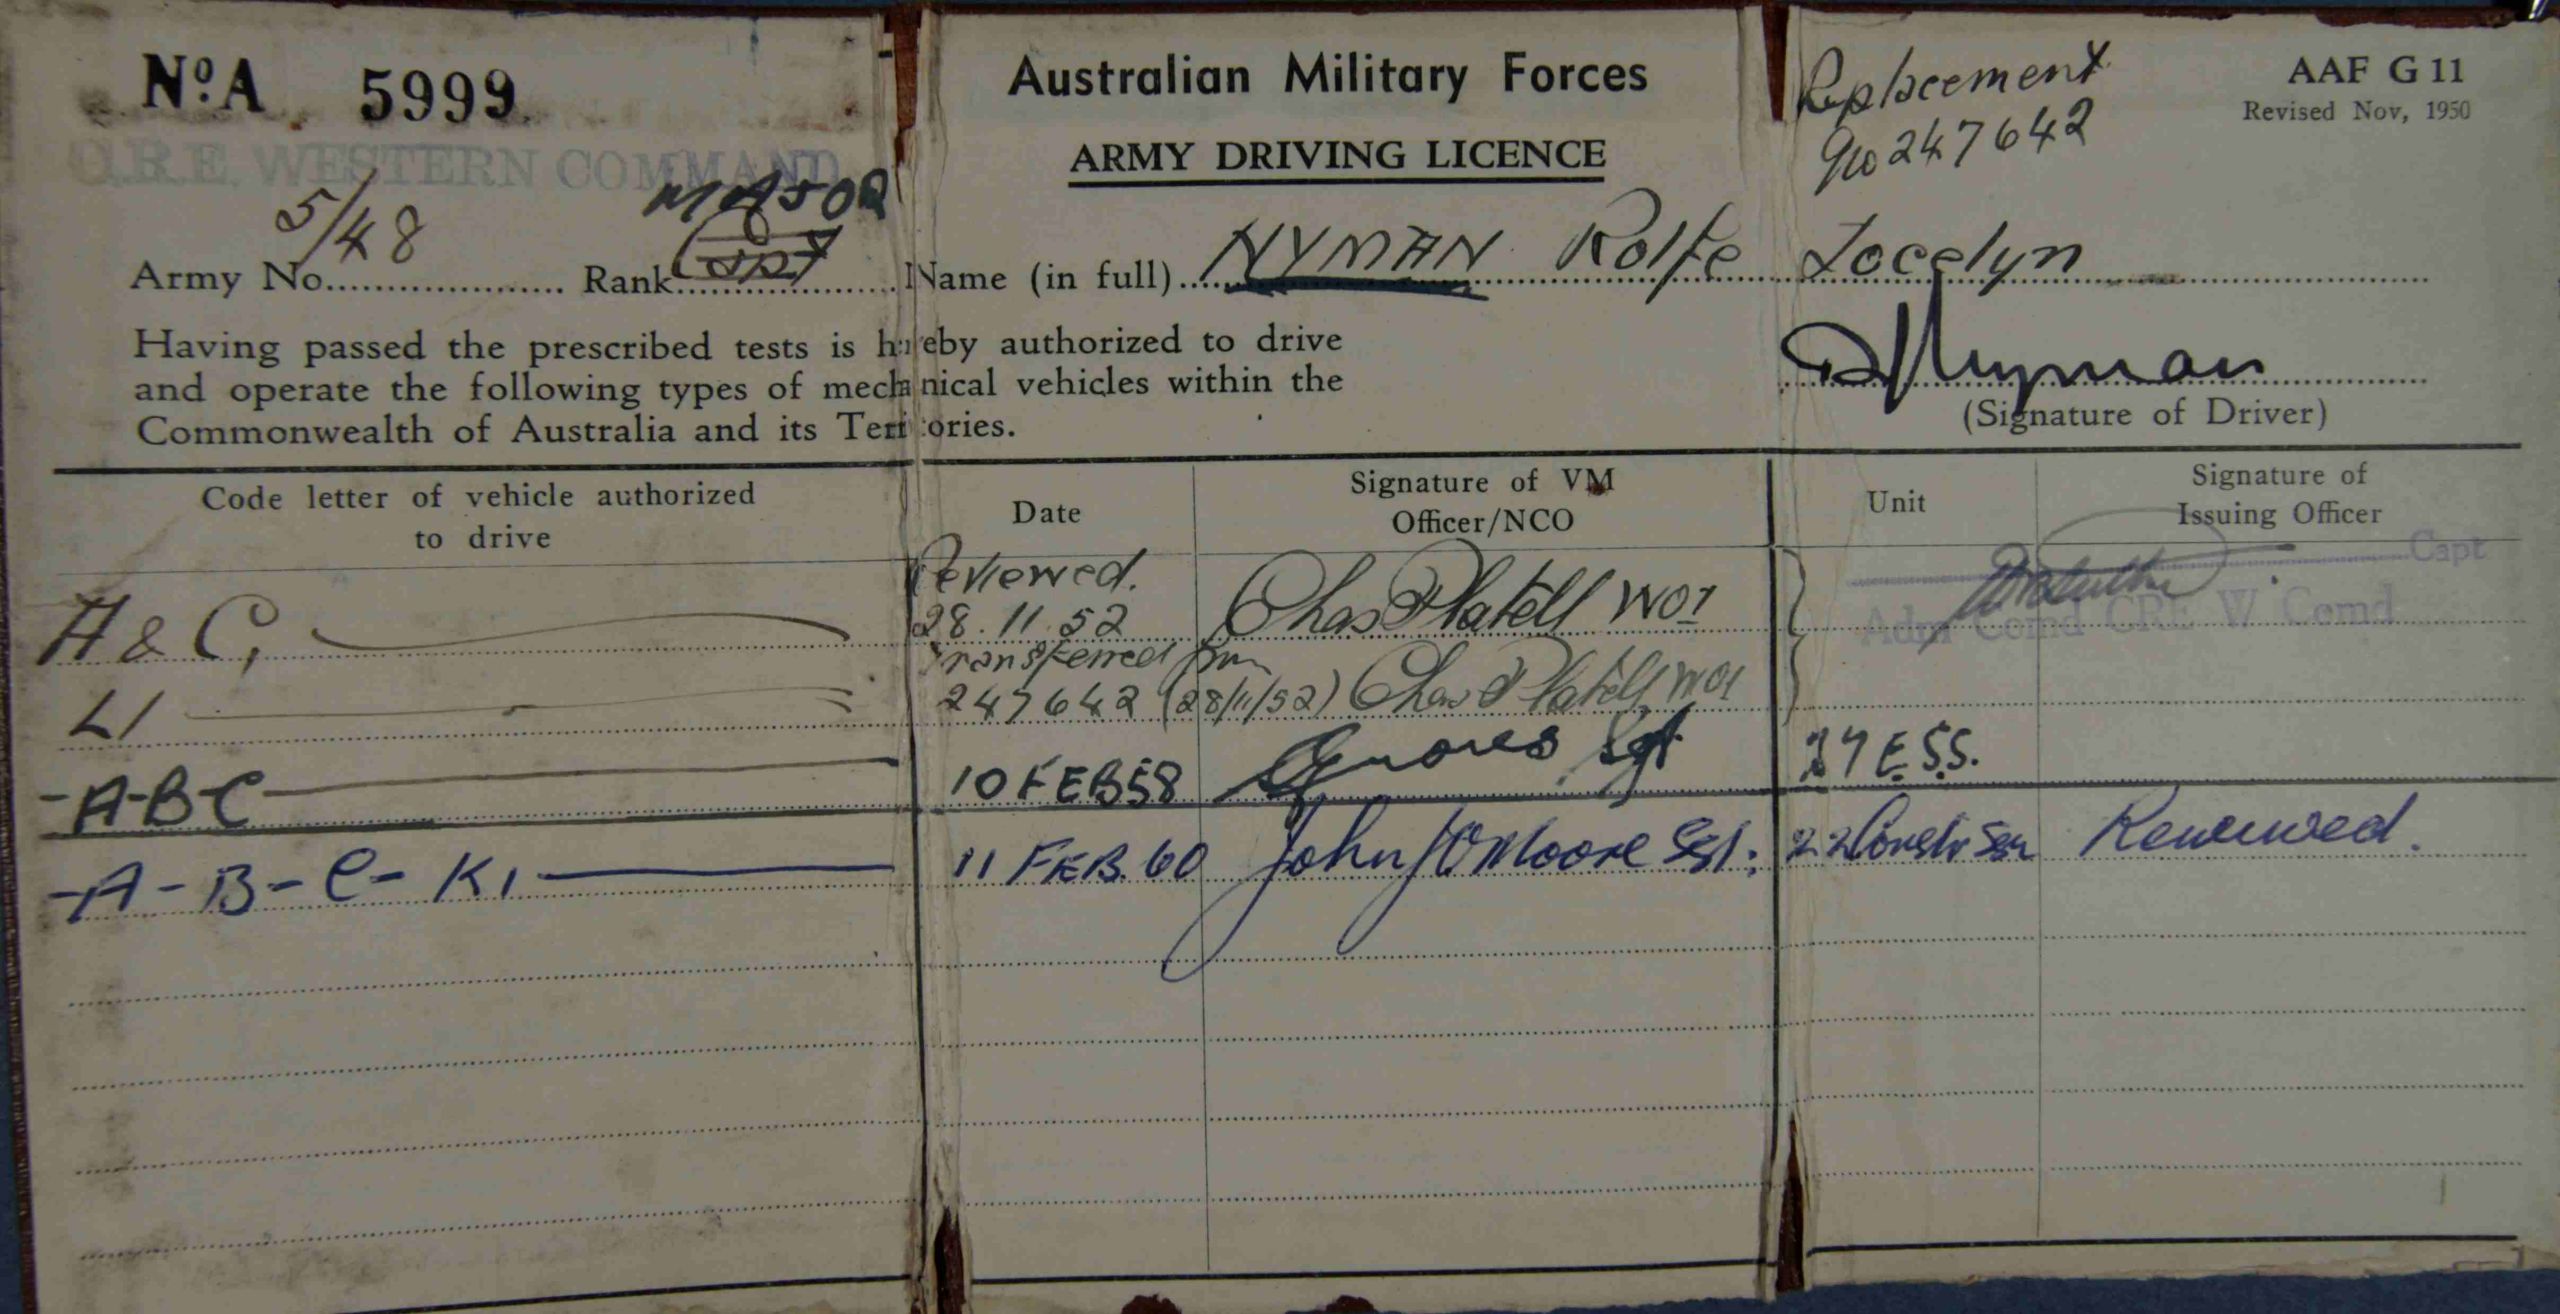 No. A 5999
C.R.E. WESTERN COMMAND
Australian Military Forces
ARMY DRIVING LICENCE
Replacement
247642
AAF G 11
Revised Nov, 1950
MAJOR
Army No. 5/48 Rank Capt Name (in full) NYMAN Rolfe Jocelyn
Having passed the prescribed tests is hereby authorized to drive
and operate the following types of mechanical vehicles within the
Commonwealth of Australia and its Territories.
RJNyman
(Signature of Driver)
Code letter of vehicle authorized
to drive
Date
Signature of VM
Officer/NCO
Unit
Signature of
Issuing Officer
Capt
Adm Comd CRE W. Comd
A & C,
Reviewed.
28.11.52 Chas Platell WO1
Transferred from
L1 247642 (28/11/52) Chas Platell WO1
-A-B-C 10 FEB 58 Sgt E.S.S.
-A-B-C- K1 11 FEB. 60 John Moore Sgt. 22 Constr Sqn Renewed.